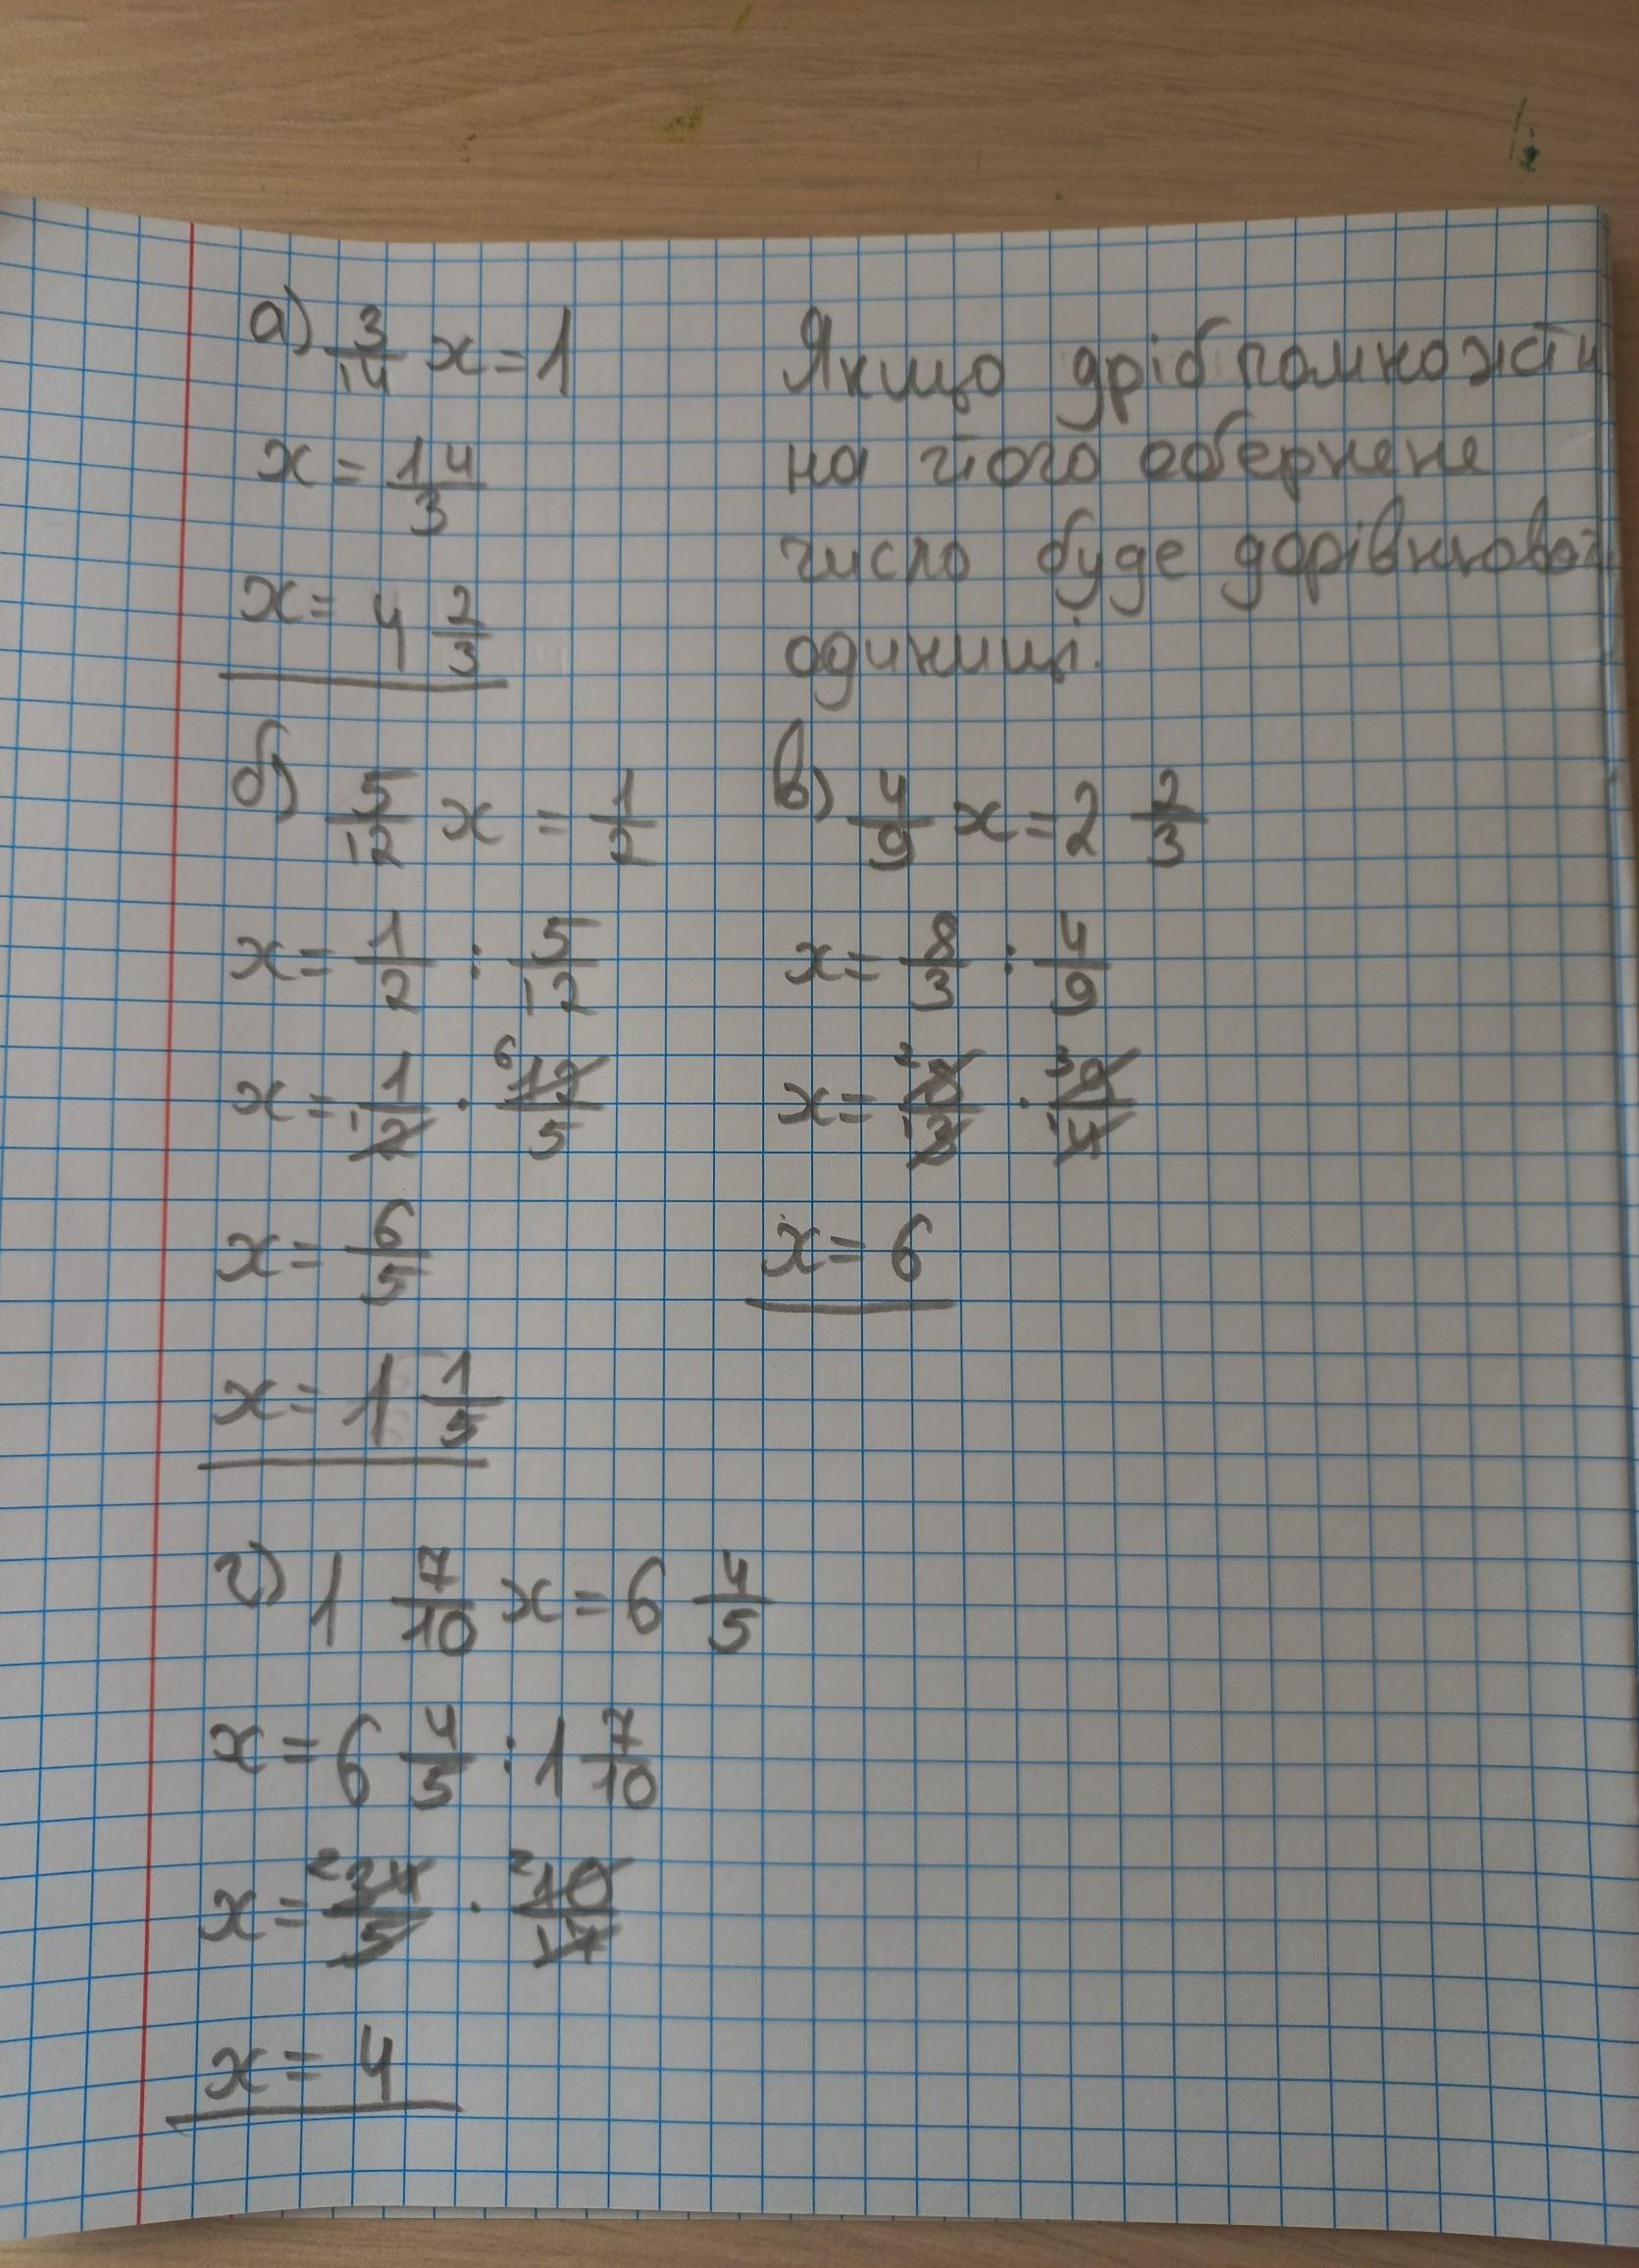 а) 3/14 x = 1
x = 14/3
x = 4 2/3
Якщо дріб помножсти
на його обернене
число буде дорівнювати
одиниці.
б) 5/12 x = 1/2
x = 1/2 : 5/12
x = 1/2 · 12/5
x = 6/5
x = 1 1/5
в) 4/9 x = 2 2/3
x = 8/3 : 4/9
x = 8/3 · 9/4
x = 6
г) 1 7/10 x = 6 4/5
x = 6 4/5 : 1 7/10
x = 34/5 · 10/17
x = 4